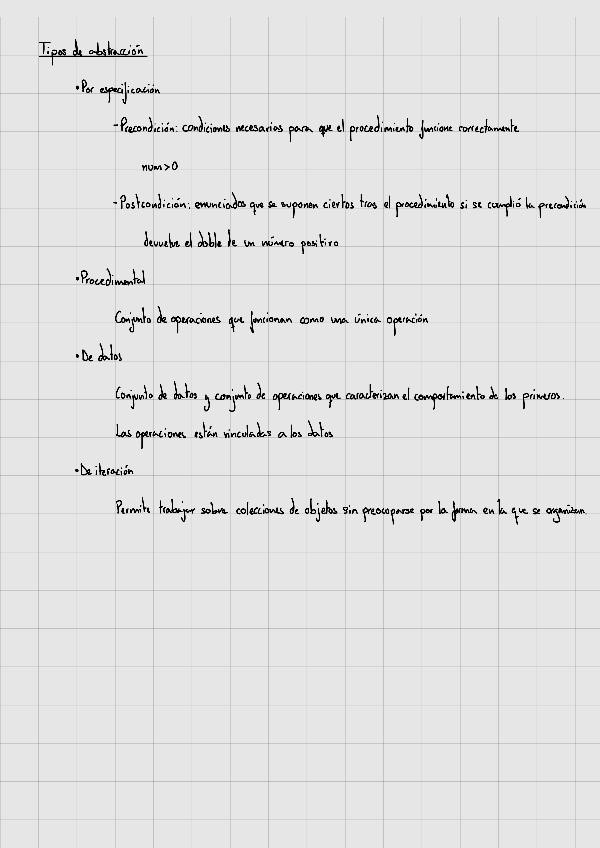 Tipos de abstracción
•Por especificación
-Precondición: condiciones necesarias para que el procedimiento funcione correctamente
num>0
-Postcondición: enunciados que se suponen ciertos tras el procedimiento si se cumplió la precondición
devuelve el doble de un número positivo
•Procedimental
Conjunto de operaciones que funcionan como una única operación
•De datos
Conjunto de datos y conjunto de operaciones que caracterizan el comportamiento de los primeros.
Las operaciones están vinculadas a los datos
•De iteración
Permite trabajar sobre colecciones de objetos sin preocuparse por la forma en la que se organizan.